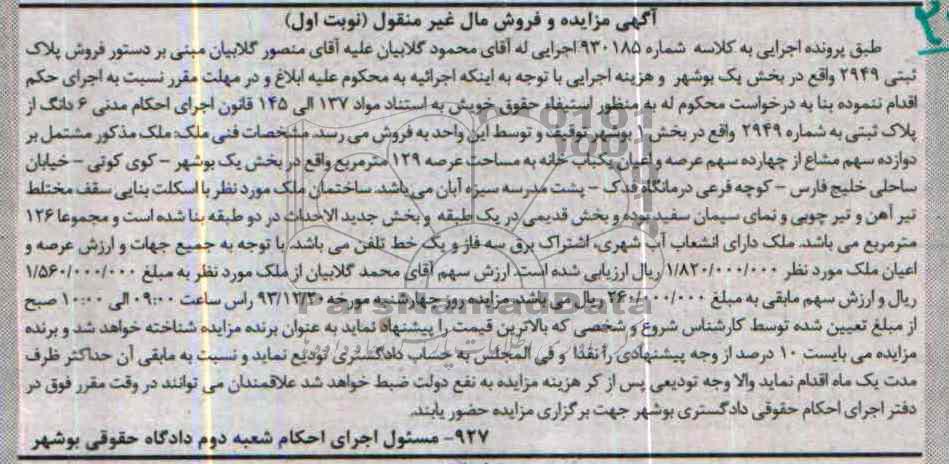 آگهی مزایده و فروش مال غیر منقول (نوبت اول)
طبق پرونده اجرایی به کلاسه شماره ۹۳۰۱۸۵ اجرایی له آقای محمود گلابیان علیه آقای منصور گلابیان مبنی بر دستور فروش پلاک
ثبتی ۲۹۴۹ واقع در بخش یک بوشهر و هزینه اجرایی با توجه به اینکه اجرائیه به محکوم علیه ابلاغ و در مهلت مقرر نسبت به اجرای حکم
اقدام ننموده بنا به درخواست محکوم له به منظور استیفاء حقوق خویش به استناد مواد ۱۳۷ الی ۱۴۵ قانون اجرای احکام مدنی ۶ دانگ از
پلاک ثبتی به شماره ۲۹۴۹ واقع در بخش ۱ بوشهر توقیف و توسط این واحد به فروش می رسد. مشخصات فنی ملک: ملک مذکور مشتمل بر
دوازده سهم مشاع از چهارده سهم عرصه و اعیان یکباب خانه به مساحت عرصه ۱۲۹ مترمربع واقع در بخش یک بوشهر – کوی کوتی – خیابان
ساحلی خلیج فارس – کوچه فرعی درمانگاه فدک – پشت مدرسه سیزه آبان می باشد. ساختمان ملک مورد نظر با اسکلت بنایی سقف مختلط
تیر آهن و تیر چوبی و نمای سیمان سفید بوده و بخش قدیمی در یک طبقه و بخش جدید الاحداث در دو طبقه بنا شده است و مجموعا ۱۲۶
مترمربع می باشد. ملک دارای انشعاب آب شهری، اشتراک برق سه فاز و یک خط تلفن می باشد. با توجه به جمیع جهات و ارزش عرصه و
اعیان ملک مورد نظر ۱/۸۲۰/۰۰۰/۰۰۰ ریال ارزیابی شده است. ارزش سهم آقای محمد گلابیان از ملک مورد نظر به مبلغ ۱/۵۶۰/۰۰۰/۰۰۰
ریال و ارزش سهم مابقی به مبلغ ۲۶۰/۰۰۰/۰۰۰ ریال می باشد. مزایده روز چهارشنبه مورخه ۹۳/۱۲/۲۰ راس ساعت ۰۹:۰۰ الی ۱۰:۰۰ صبح
از مبلغ تعیین شده توسط کارشناس شروع و شخصی که بالاترین قیمت را پیشنهاد نماید به عنوان برنده مزایده شناخته خواهد شد و برنده
مزایده می بایست ۱۰ درصد از وجه پیشنهادی را نقدا و فی المجلس به حساب دادگستری تودیع نماید و نسبت به مابقی آن حداکثر ظرف
مدت یک ماه اقدام نماید والا وجه تودیعی پس از کر هزینه مزایده به نفع دولت ضبط خواهد شد علاقمندان می توانند در وقت مقرر فوق در
دفتر اجرای احکام حقوقی دادگستری بوشهر جهت برگزاری مزایده حضور یابند.
۹۲۷- مسئول اجرای احکام شعبه دوم دادگاه حقوقی بوشهر
ParsNamadData